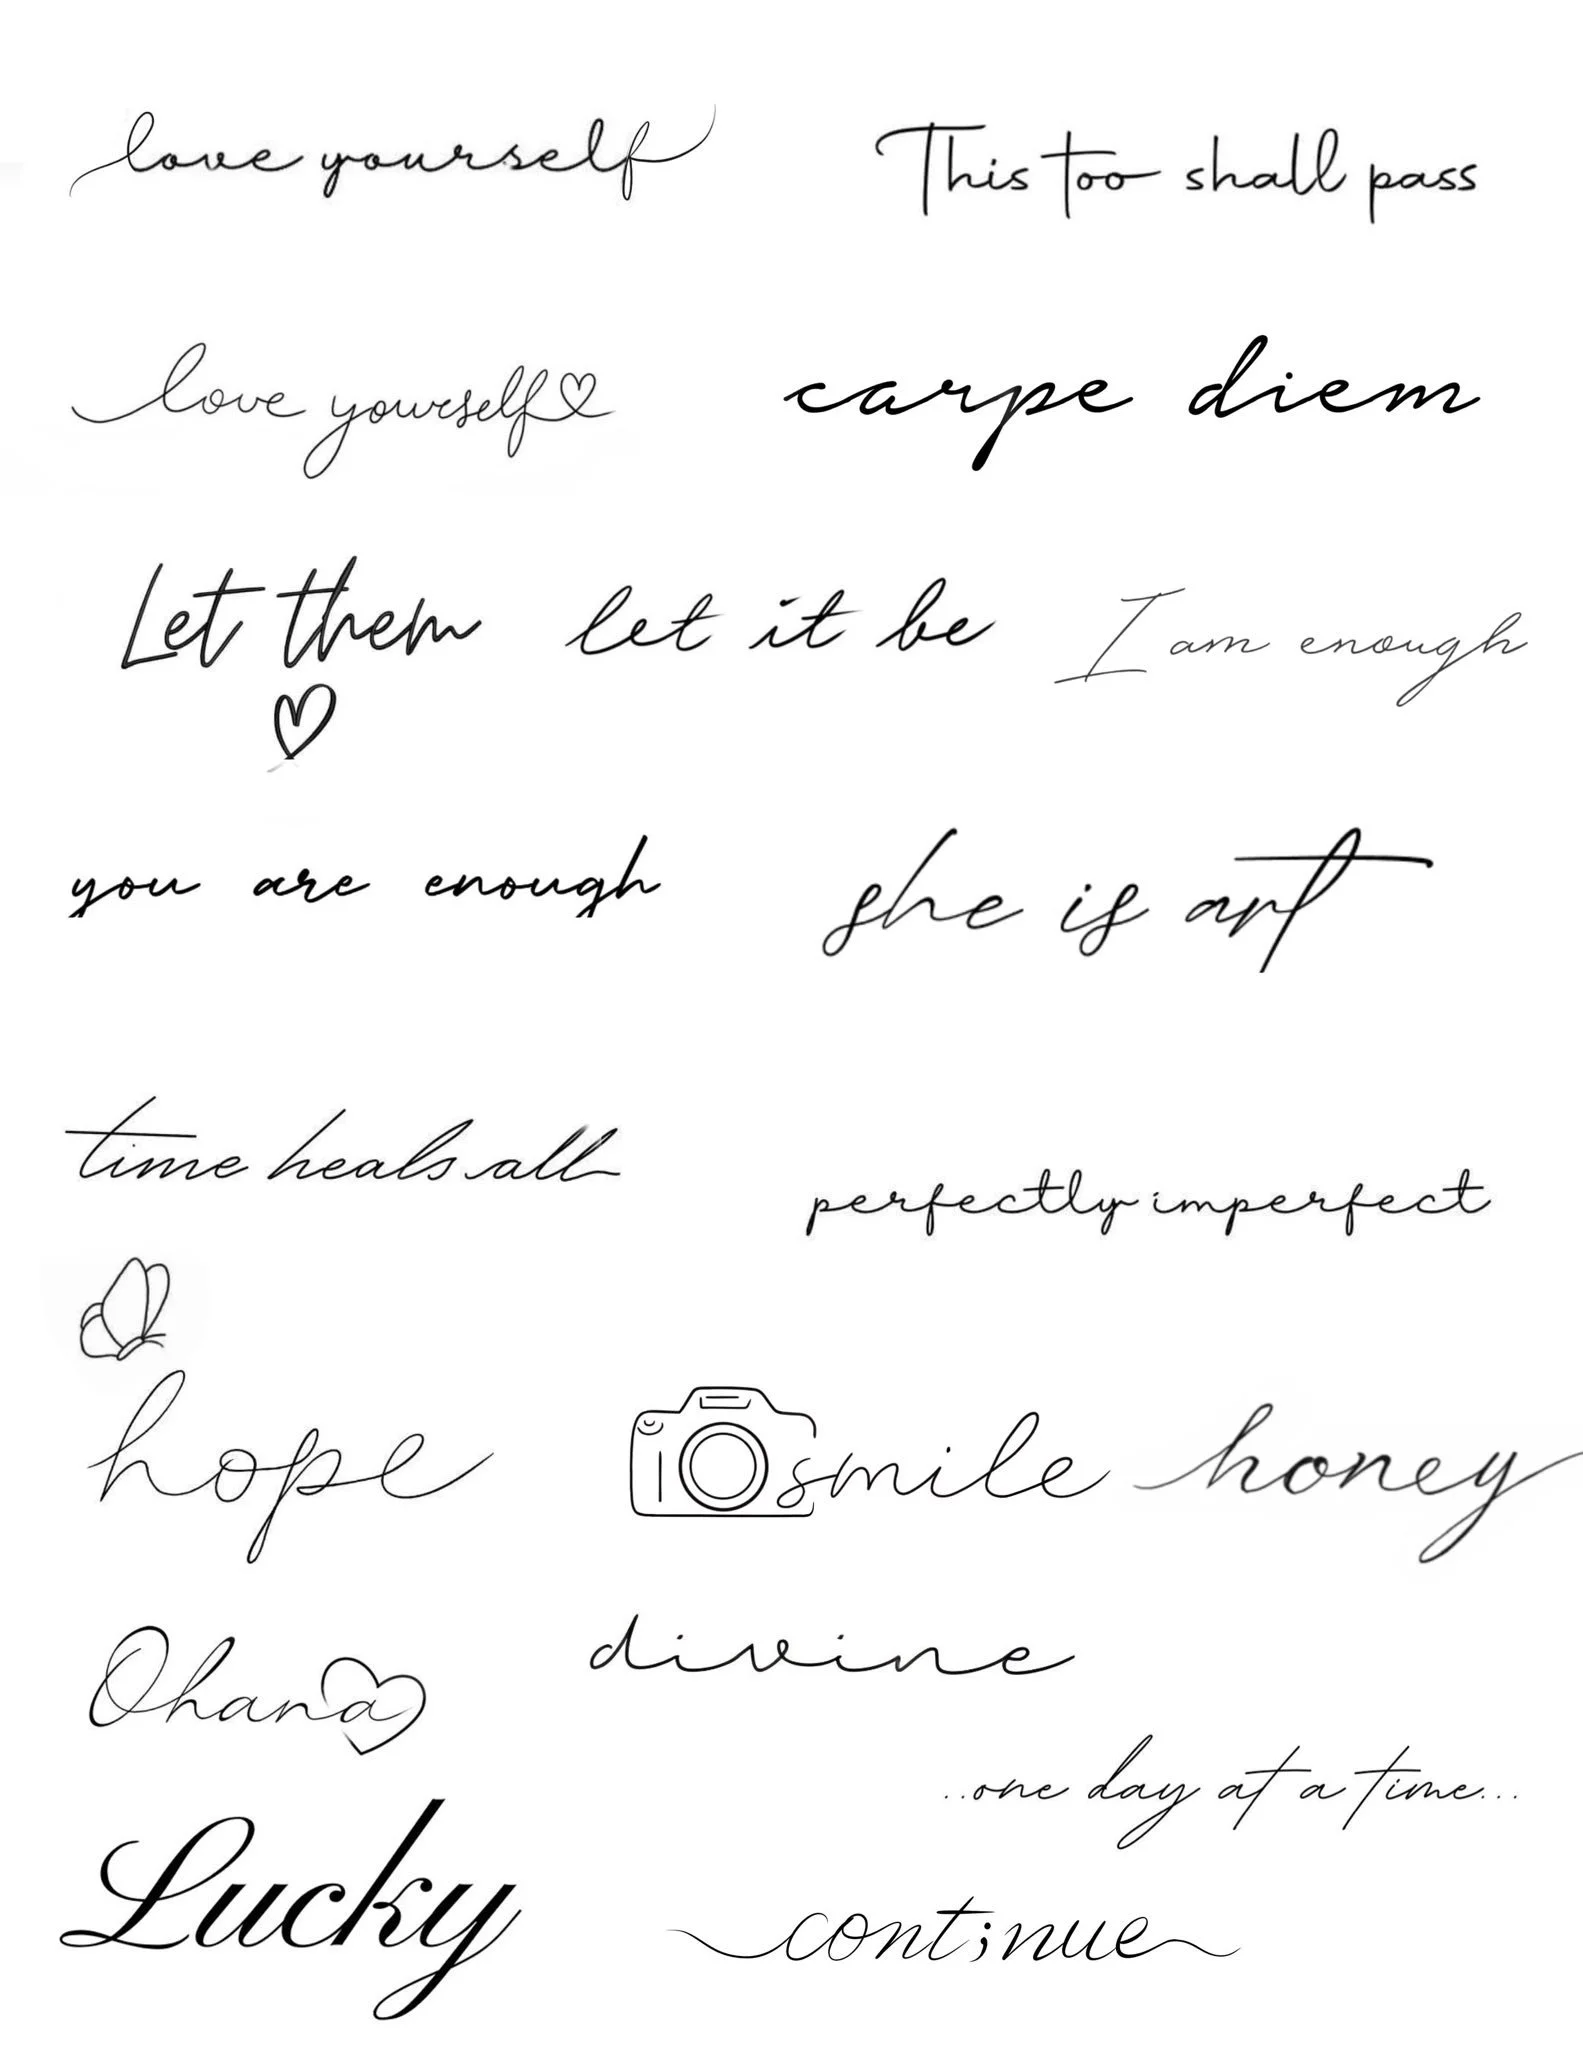 love yourself
This too shall pass
love yourself
carpe diem
Let them
let it be
I am enough
you are enough
she is art
time heals all
perfectly imperfect
hope
smile
honey
Ohana
divine
..one day at a time...
Lucky
cont;nue